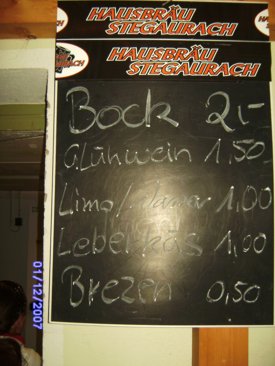 HAUSBRÄU
STEGAURACH
HAUSBRÄU
STEGAURACH
Bock 2,-
GLühwein 1,50
Limo/ 1,00
Leberkäs 1,00
Brezen 0,50
01/12/2007